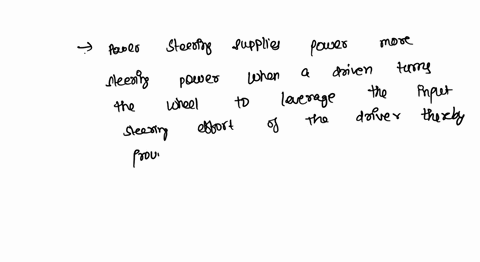 → Power steering supplies power more
steering power when a driven turns
the wheel to leverage the input
steering effort of the driver thereby
prov